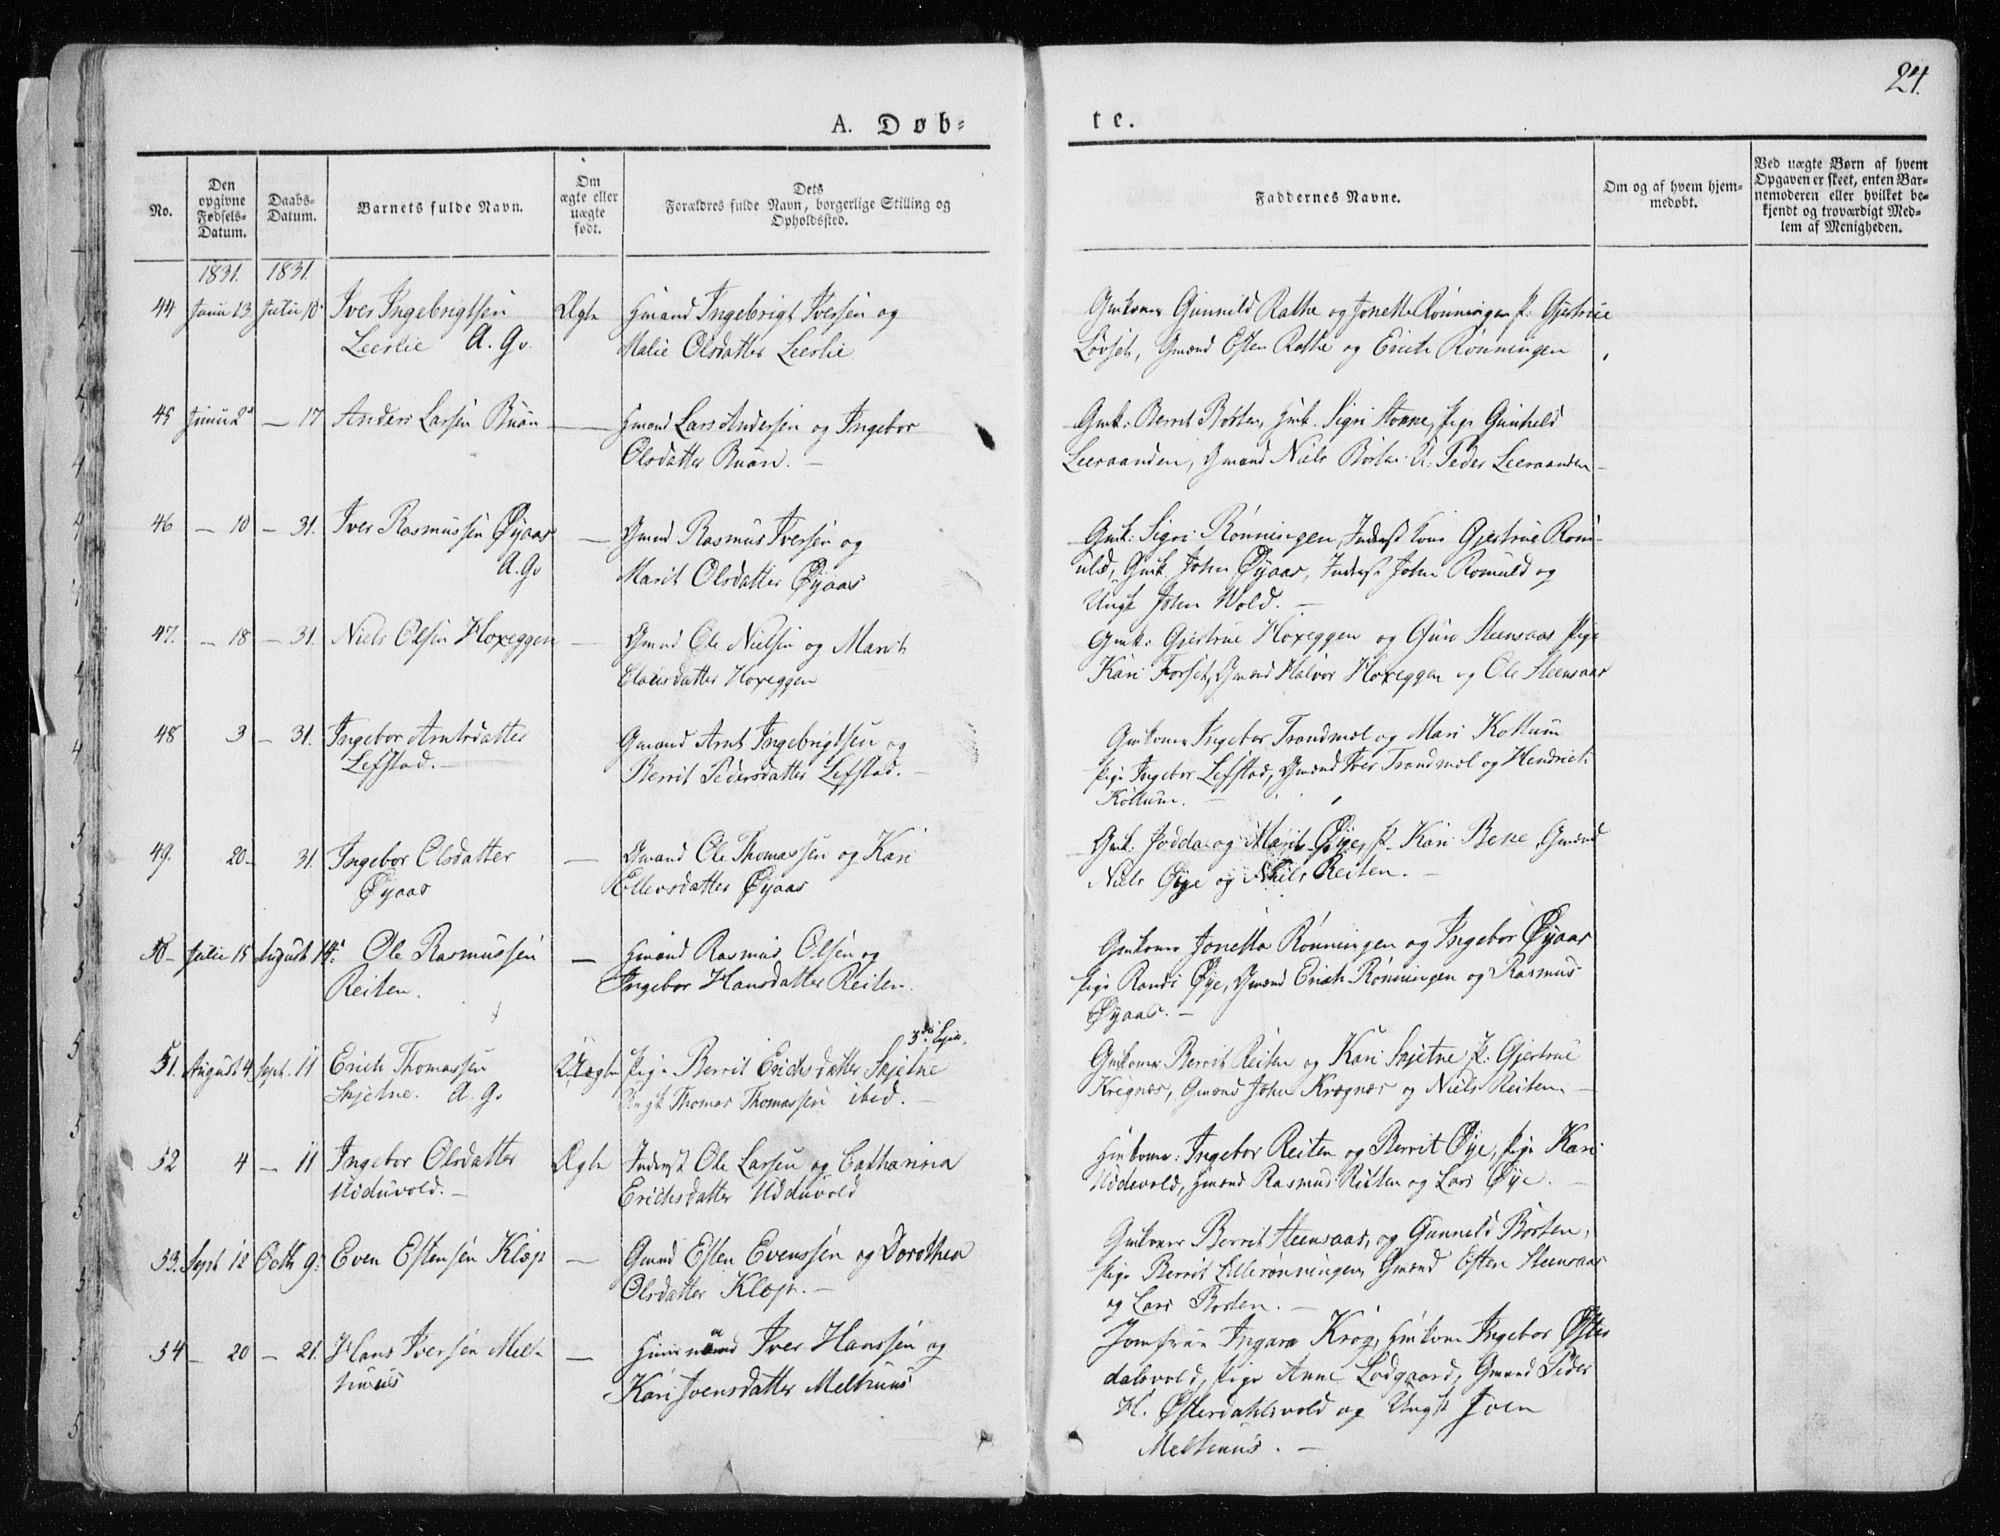 24.
A. Døb-
te.
No.
Den opgivne Fødsels-Datum.
Daabs-Datum.
Barnets fulde Navn.
Om ægte eller uægte født.
Dets Forældres fulde Navn, borgerlige Stilling og Opholdssted.
Faddernes Navne.
Om og af hvem hjem-medøbt.
Ved uægte Børn af hvem Opgaven er skeet, enten Bar-nemoderen eller hvilket be-kjendt og troværdigt Med-lem af Menigheden.
1831. 1831.
44 Junii 13 Julii 10 Iver Ingebrigtsen Ægte Hmand Ingebrigt Iversen og
Leerlie A. Gv. Malie Olsdatter Leerlie
Gmkoner Gunnild Rathe og Jonetta Rønningen P: Gjertrue
Løvset, Gmænd Esten Rathe og Erich Rønningen
45 Junii — 17 Anders Larsen Buan — Hmand Lars Andersen og Ingebor
Olsdatter Buan. —
Gmk: Berrit Borten, Hmk. Sigri Pige Gunhild
Leeraanden, Gmænd Niels Borten U: Peder Leeraanden —
46 — 10 — 31. Iver Rasmussen Øyaas — Gmand Rasmus Iversen og
A. Gv Marit Olsdatter Øyaas
Gmk: Sigri Rønningen, Inderst Kone Gjertrue Rom-
uld, Gmk John Øyaas, Inderst John Romuld og
Ungk John Wold. —
47. — 18 — 31 Niels Olsen Hoxeggen — Gmand Ole Nielsen og Marit
Hoxeggen
Gmk: Gjertrue Hoxeggen og Guro Steensaas Pige
Kari Forset, Gmænd Halvor Hoxeggen og Ole Steensaas
48 3 — 31. Ingebor Arntsdatter Gmand Arnt Ingebrigtsen og
Lefstad. — Berrit Pedersdatter Lefstad. —
Gmkoner Ingebor Trandmæl og Mari Kottum
Pige Ingebor Lefstad, Gmænd Iver Trandmæl og Hendrich
Kottum. —
49. 20 — 31. Ingebor Olsdatter — Gmand Ole Thomassen og Kari
Øyaas Ellevsdatter Øyaas
Gmk. Jodda og Marit Øye, P. Kari Beke, Gmænd
Niels Øye og Niels Reiten. —
50 — Julii 15 August 14: Ole Rasmussen — Hmand Rasmus Olsen og
Reiten. Ingebor Hansdatter Reiten.
Gmkoner Jonetta Rønningen og Ingebor Øyaas
Pige Randi Øye, Gmænd Erich Rønningen og Rasmus
Øyaas. —
51. August 4 Sept. 11 Erich Thomassen Uægte Pige Berrit Erichsdatter Skjetne
Skjetne. A. Gv Ungk Thomas Thomassen ibid. —
Gmkoner Berrit Reiten og Kari Skjetne P: Gjertrue
Kregnæs, Gmænd John Krægnæs og Niels Reiten. —
52 4 — 11 Ingebor Olsdatter Ægte Inderst Ole Larsen og Catharina
Udduvold. — Erichsdatter Udduvold
Hmkoner: Ingebor Reiten og Berrit Øye, Pige Kari
Uddevold, Hmænd Rasmus Reitten og Lars Øye. —
53. Sept 12 Octb 9: Even Estensen Klæp — Gmand Esten Evenssen og Dorothea
Olsdatter Klæp. —
Gmkoner Berrit Steensaas, og Gunneld Borten,
Pige Berrit Lillerønningen, Gmænd Esten Steensaas
og Lars Borten. —
54 — 20 — 21. Hans Iversen Mel- — Huusmand Iver Hanssen og
huus Kari Joensdatter Melhuus
Jomfrue Ingara Krog, Hmkone Ingebor Øster
dalsvold, Pige Anne Lodgaard, Gmænd Peder
H. Østerdahlsvold og Ungk Joen
Melhuus. —